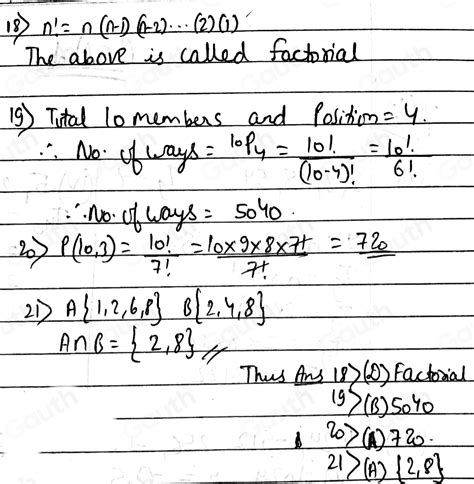 18) n! = n (n-1) (n-2) ... (2) (1)
The above is called factorial
19) Total 10 members and Position = 4.
∴ No. of ways = ¹⁰P₄ = 10! / (10-4)! = 10! / 6!
∴ No. of ways = 5040.
20) P(10,3) = 10! / 7! = 10×9×8×7! / 7! = 720
21) A{1,2,6,8} B{2,4,8}
A∩B = {2,8}
Thus Ans 18) (D) Factorial
19) (B) 5040
20) (A) 720.
21) (A) {2,8}